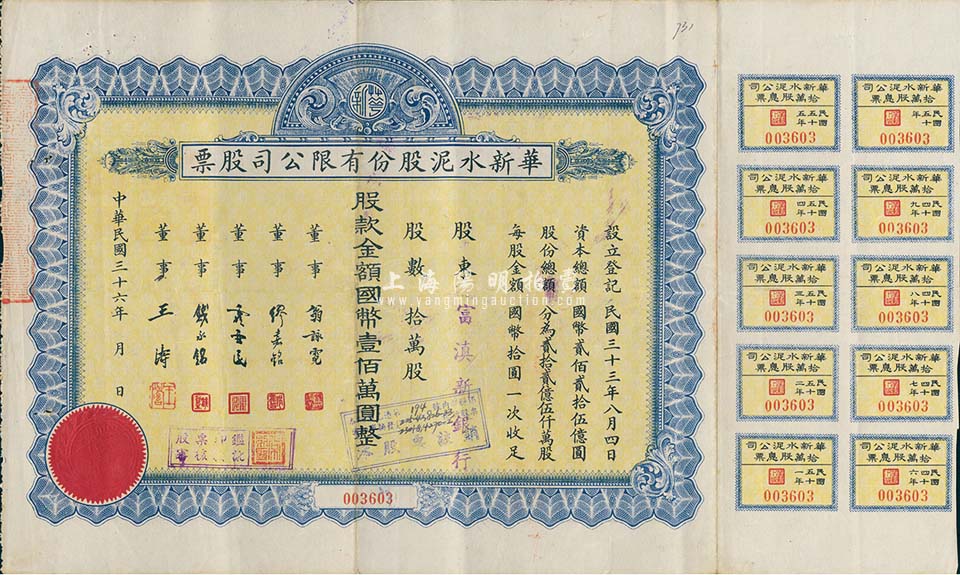 731
華新
華新水泥股份有限公司股票
設立登記 民國三十三年八月四日
資本總額 國幣貳佰貳拾伍億圓
股份總額 分為貳拾貳億伍仟萬股
每股金額 國幣拾圓一次收足
股東 富滇新銀行
股數 拾萬股
股款金額國幣壹佰萬圓整
董事 翁詠霓
董事
董事
董事 錢永銘
董事 王濤
中華民國三十六年 月 日
003603
上海陽明拍賣
www.yangmingauction.com
華新水泥公司
拾萬股息票
民國五十五年
003603
華新水泥公司
拾萬股息票
民國五十年
003603
華新水泥公司
拾萬股息票
民國五十四年
003603
華新水泥公司
拾萬股息票
民國四十九年
003603
華新水泥公司
拾萬股息票
民國五十三年
003603
華新水泥公司
拾萬股息票
民國四十八年
003603
華新水泥公司
拾萬股息票
民國五十二年
003603
華新水泥公司
拾萬股息票
民國四十七年
003603
華新水泥公司
拾萬股息票
民國五十一年
003603
華新水泥公司
拾萬股息票
民國四十六年
003603